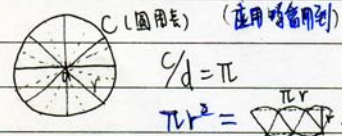 C (圆周长) (应用时常用到)
d r
C/d = π
πr² = πr
r